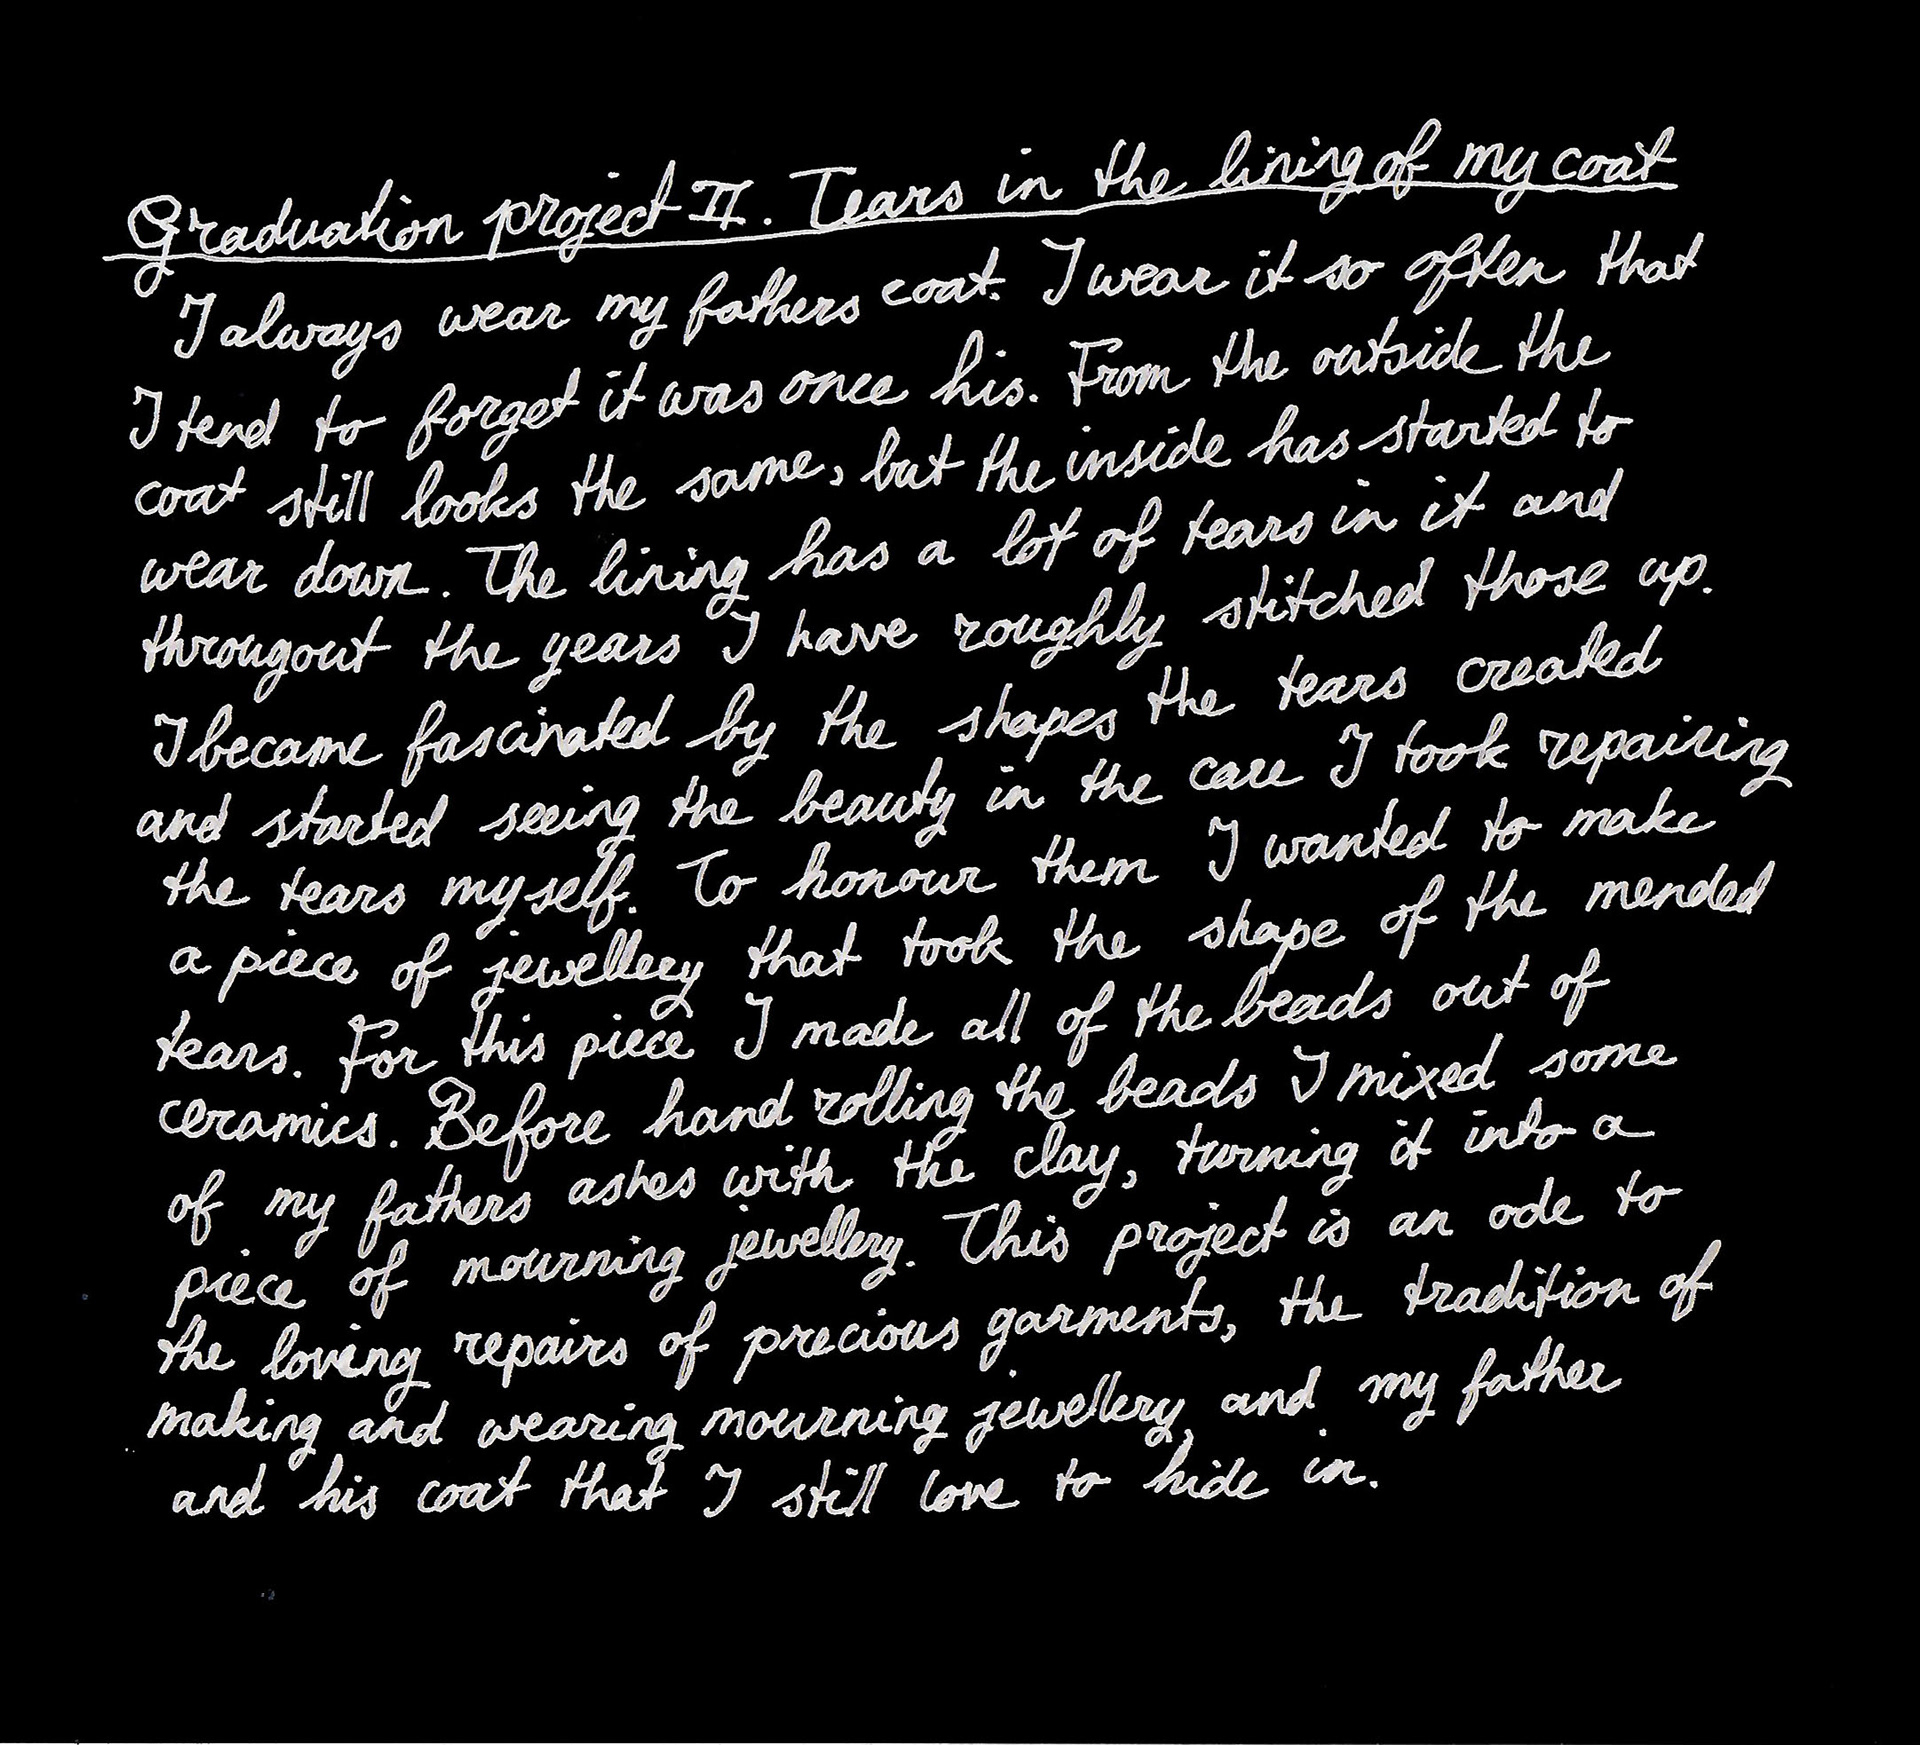 Graduation project II. Tears in the lining of my coat
I always wear my fathers coat. I wear it so often that
I tend to forget it was once his. From the outside the
coat still looks the same, but the inside has started to
wear down. The lining has a lot of tears in it and
througout the years I have roughly stitched those up.
I became fascinated by the shapes the tears created
and started seeing the beauty in the care I took repairing
the tears myself. To honour them I wanted to make
a piece of jewellery that took the shape of the mended
tears. For this piece I made all of the beads out of
ceramics. Before hand rolling the beads I mixed some
of my fathers ashes with the clay, turning it into a
piece of mourning jewellery. This project is an ode to
the loving repairs of precious garments, the tradition of
making and wearing mourning jewellery, and my father
and his coat that I still love to hide in.